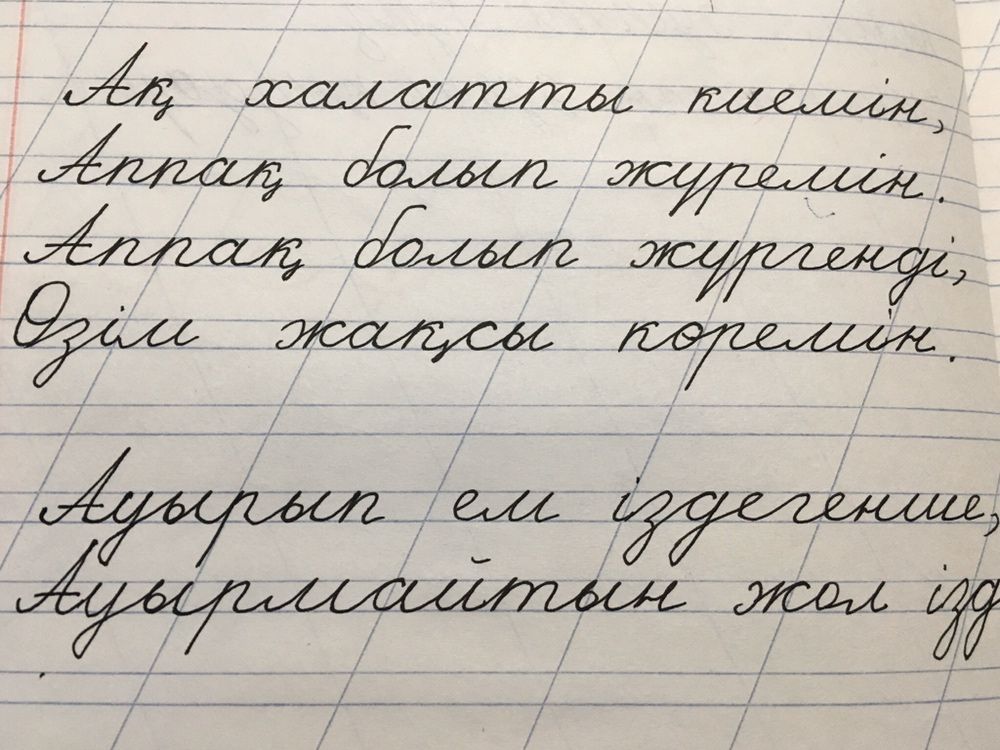 Ақ халатты киемін,
Аппақ болып жүремін.
Аппақ болып жүргенді,
Өзім жақсы көремін.
Ауырып ем іздегенше,
Ауырмайтын жол ізд